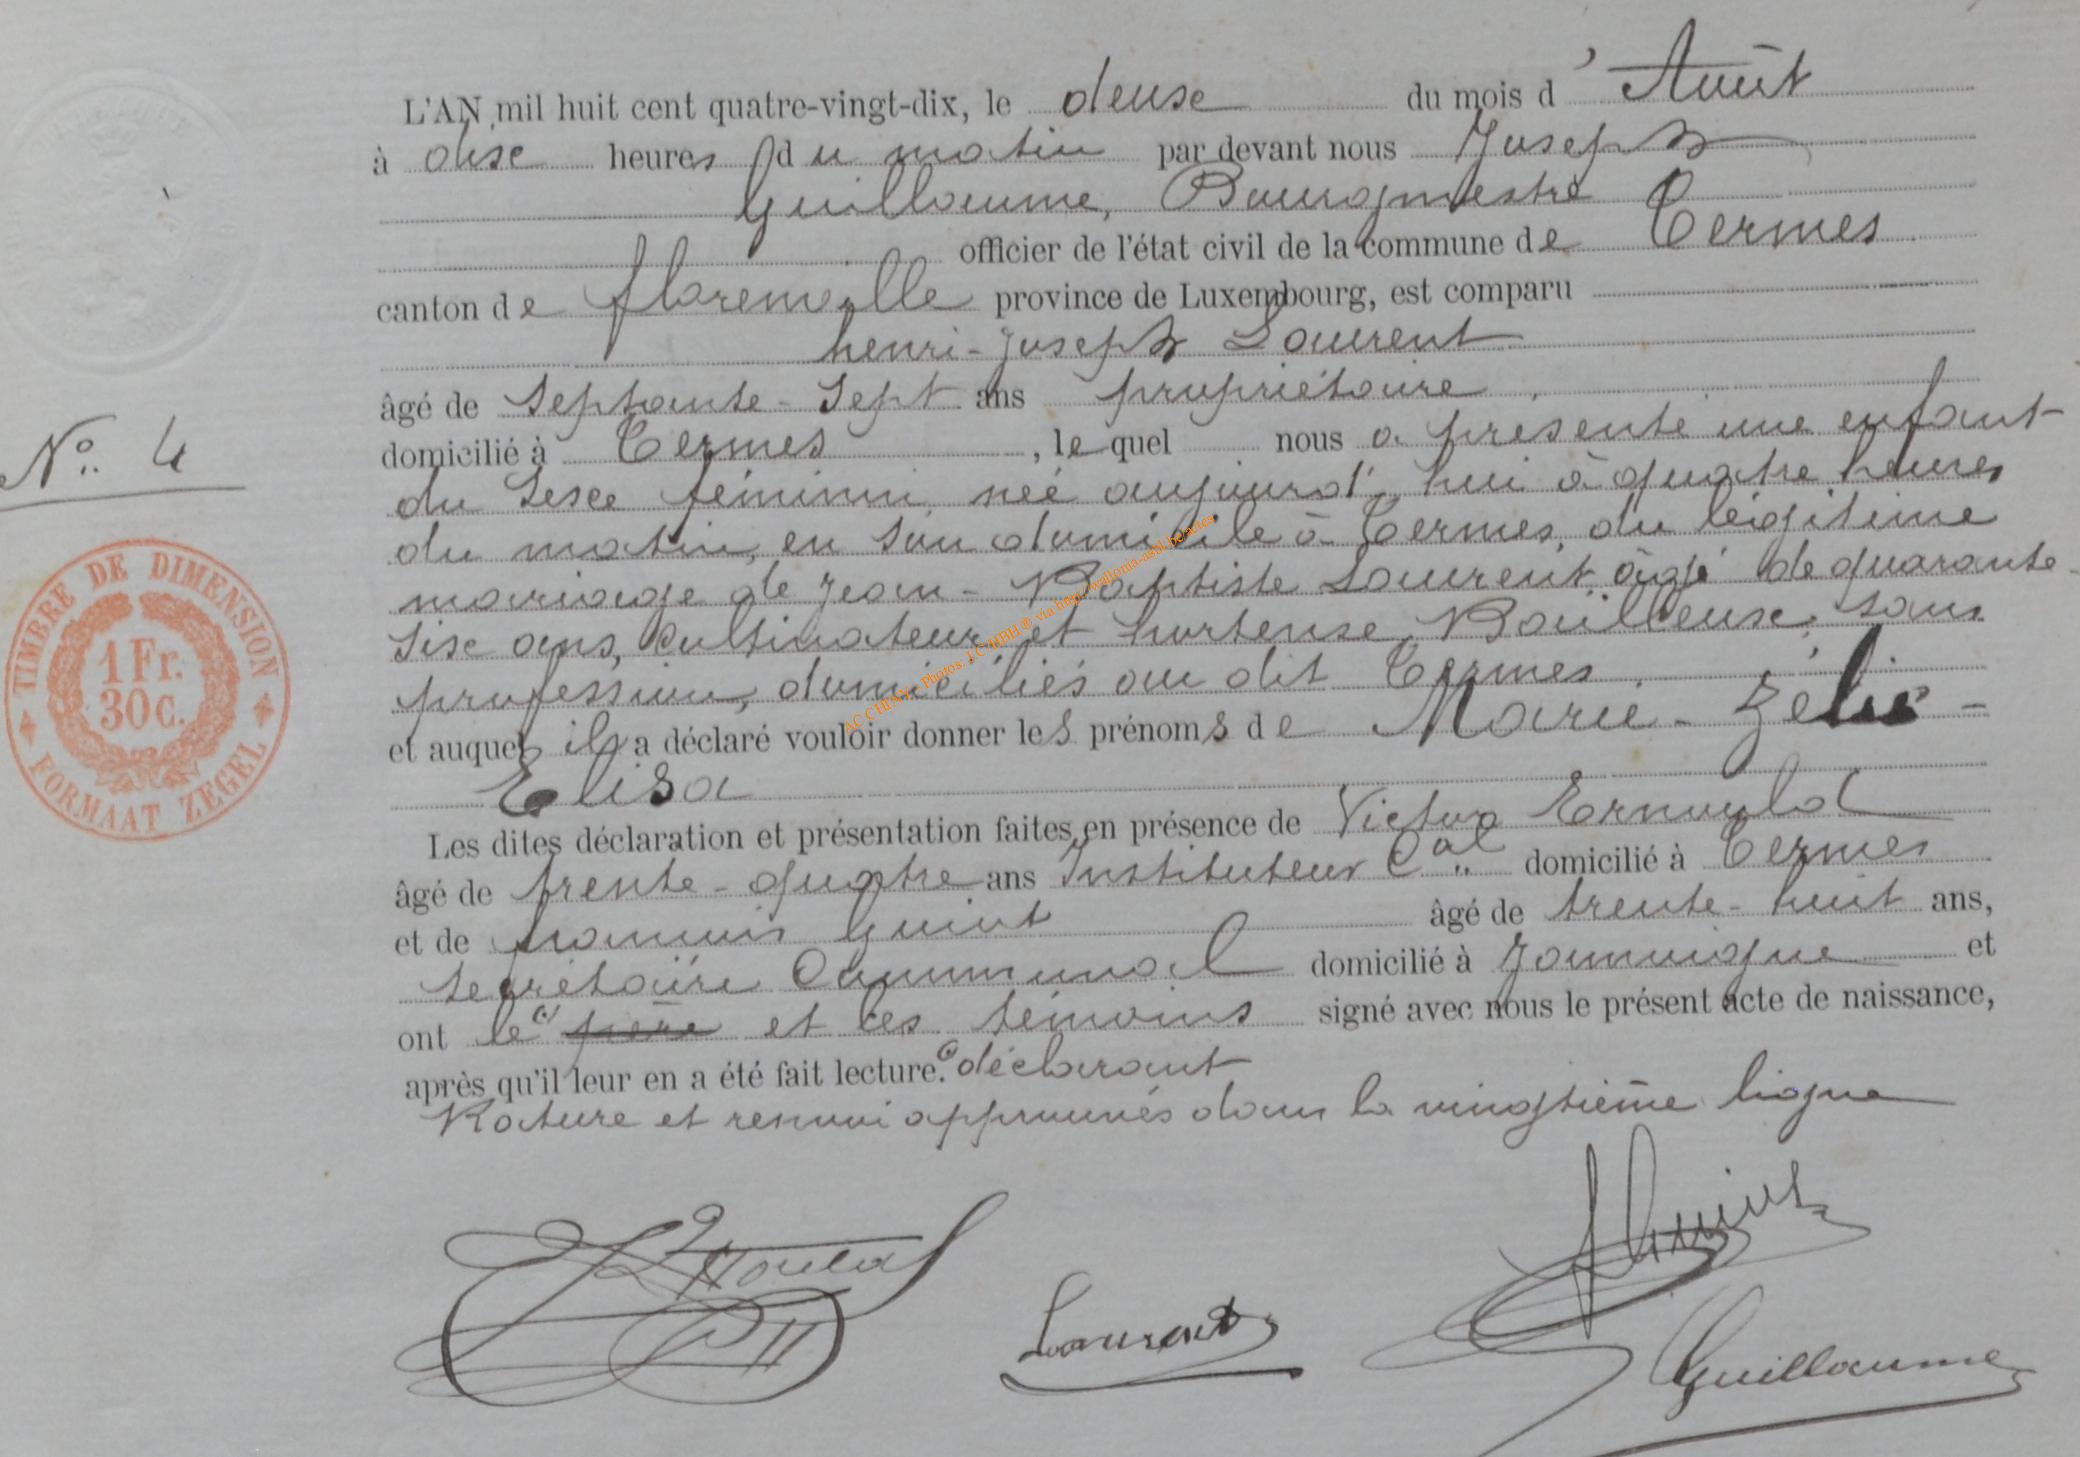 L'AN mil huit cent quatre-vingt-dix, le deuxe du mois d'Août
à onse heures du matin par devant nous Joseph
Guillaume, Bourgmestre
officier de l'état civil de la commune de Termes
canton de florenville province de Luxembourg, est comparu
henri-Joseph Laurent
âgé de Septante-Sept ans propriétaire
domicilié à Termes, lequel nous a présenté une enfant
N° 4
du Sexe féminin, née aujourd'hui à quatre heures
du matin, en son domicile à Termes, du légitime
mariage de Jean-Baptiste Laurent âgé de quarante-
Six ans, cultivateur et hortense Bouilleux, sans
profession, domiciliés au dit Termes.
et auquel il a déclaré vouloir donner les prénoms de Marie-Zélie-
Elisa
Les dites déclaration et présentation faites en présence de Victor Ernould
âgé de trente-quatre ans Instituteur Cal domicilié à Termes
et de françois Guiot âgé de trente-huit ans,
Secrétaire Communal domicilié à Jamoigne et
ont le père et les témoins signé avec nous le présent acte de naissance,
après qu'il leur en a été fait lecture. déclarant
Rature et renvoi approuvés dans la vingtième ligne
TIMBRE DE DIMENSION
1 Fr.
30 C.
FORMAAT ZEGEL
ACCHINY - Photos, J.C.HBH ® via http://wallonia-asbl.be/actes
Laurent
Guiot
Guillaume